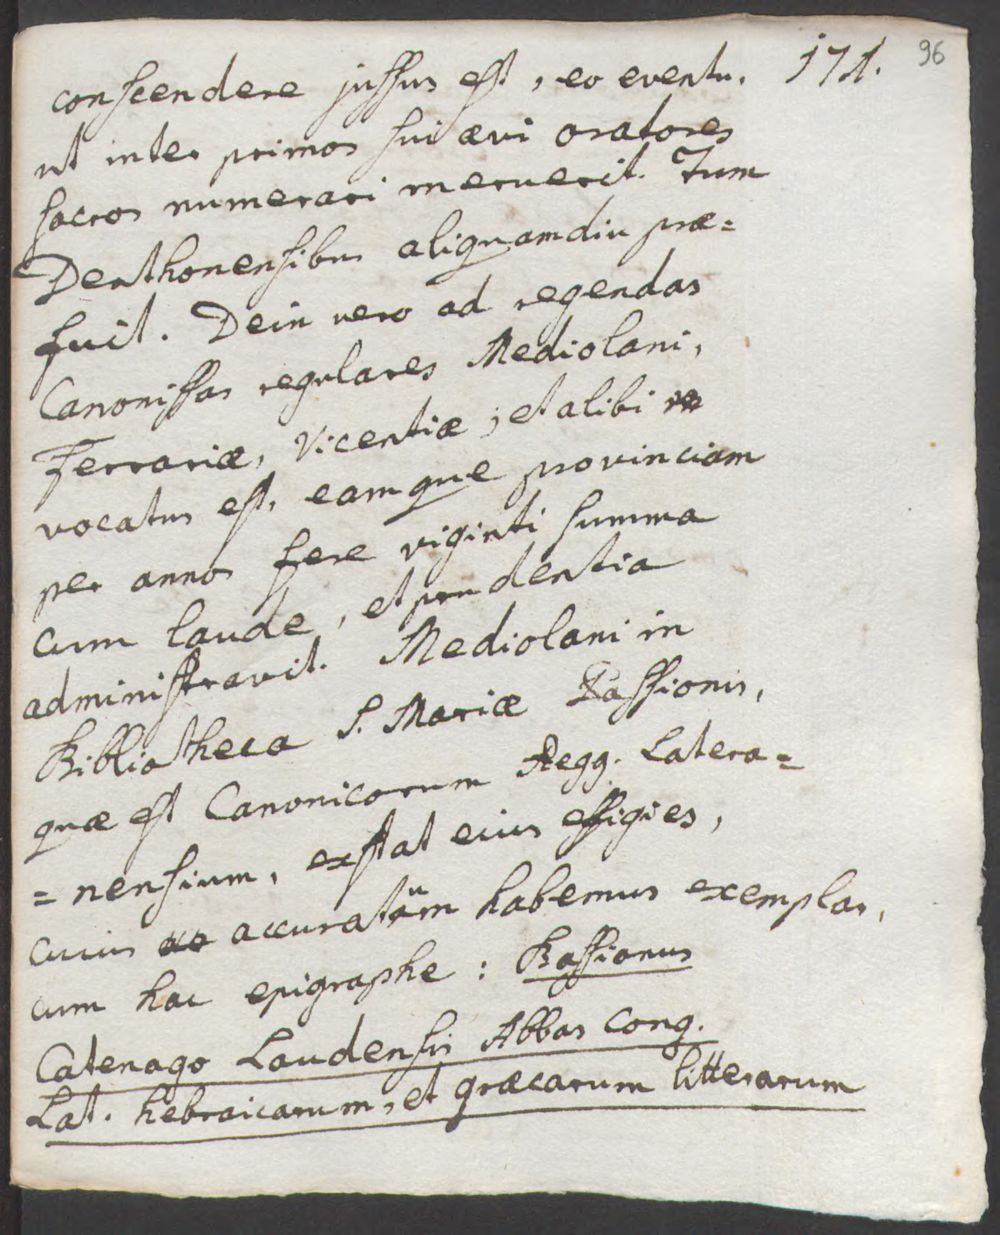 171.
96
conscendere jussus est, eo eventu,
ut inter primos sui ævi oratores
sacros numerari meruerit. Tum
Derthonensibus aliquamdiu præ=
fuit. Dein vero ad regendas
Canonissas regulares Mediolani,
Ferrariæ, Vicentiæ, et alibi
vocatus est, eamque provinciam
per annos fere viginti summa
cum laude, et prudentia
administravit. Mediolani in
Bibliotheca S. Mariæ Passionis,
quæ est Canonicorum Regg. Latera=
=nensium, exstat eius effigies,
cuius accuratum habemus exemplar,
cum hac epigraphe: Bassianus
Catenago Laudensis Abbas Cong.
Lat. hebraicarum, et græcarum litterarum